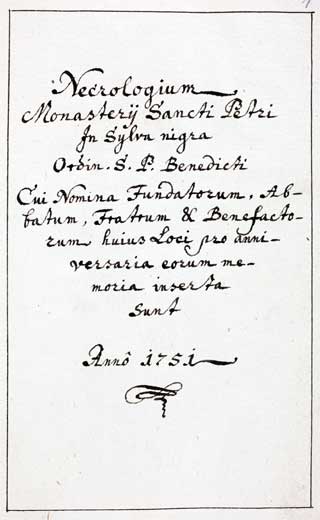 Necrologium
Monasterij Sancti Petri
In Sylva nigra
Ordin. S. P. Benedicti
Cui Nomina Fundatorum, Ab-
batum, Fratrum & Benefacto-
rum huius Loci pro anni-
versaria eorum me-
moria inserta
sunt
Annô 1751